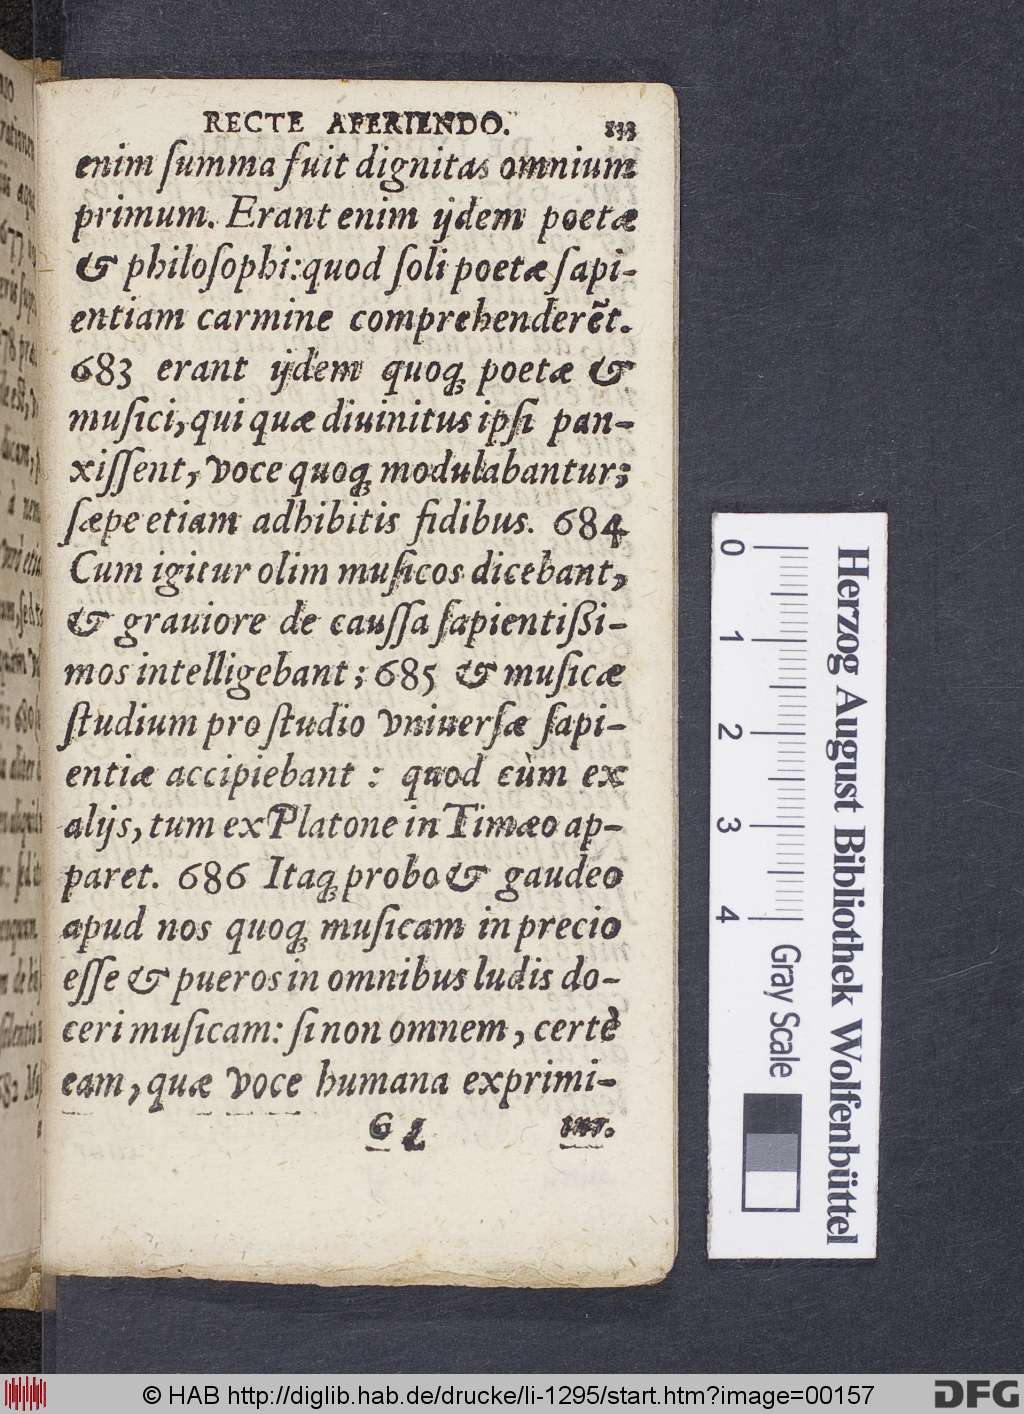 RECTE APERIENDO. 133
enim ſumma fuit dignitas omnium
primum. Erant enim ijdem poetæ
& philoſophi: quod ſoli poetæ ſapi-
entiam carmine comprehenderẽt.
683 erant ijdem quoq; poetæ &
muſici, qui quæ diuinitus ipſi pan-
xiſſent, voce quoq; modulabantur;
ſæpe etiam adhibitis fidibus. 684
Cum igitur olim muſicos dicebant,
& grauiore de cauſſa ſapientißi-
mos intelligebant; 685 & muſicæ
ſtudium pro ſtudio vniuerſæ ſapi-
entiæ accipiebant: quod cùm ex
alijs, tum ex Platone in Timæo ap-
paret. 686 Itaq; probo & gaudeo
apud nos quoq; muſicam in precio
eſſe & pueros in omnibus ludis do-
ceri muſicam: ſi non omnem, certè
eam, quæ voce humana exprimi-
tur.
0 1 2 3 4
Gray Scale
Herzog August Bibliothek Wolfenbüttel
© HAB http://diglib.hab.de/drucke/li-1295/start.htm?image=00157
DFG